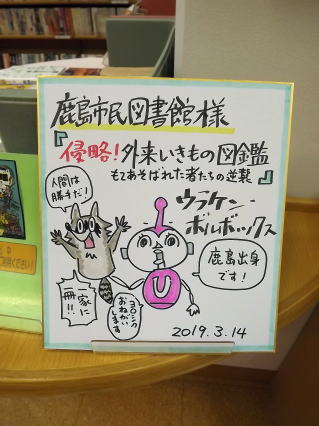 鹿島市民図書館様
『侵略!外来いきもの図鑑
もてあそばれた者たちの逆襲』
ウラケン・
ボルボックス
人間は
勝手だ!
鹿島出身
です!
U
一家に
一冊!!
ヨロシク
おねがい
します
2019.3.14